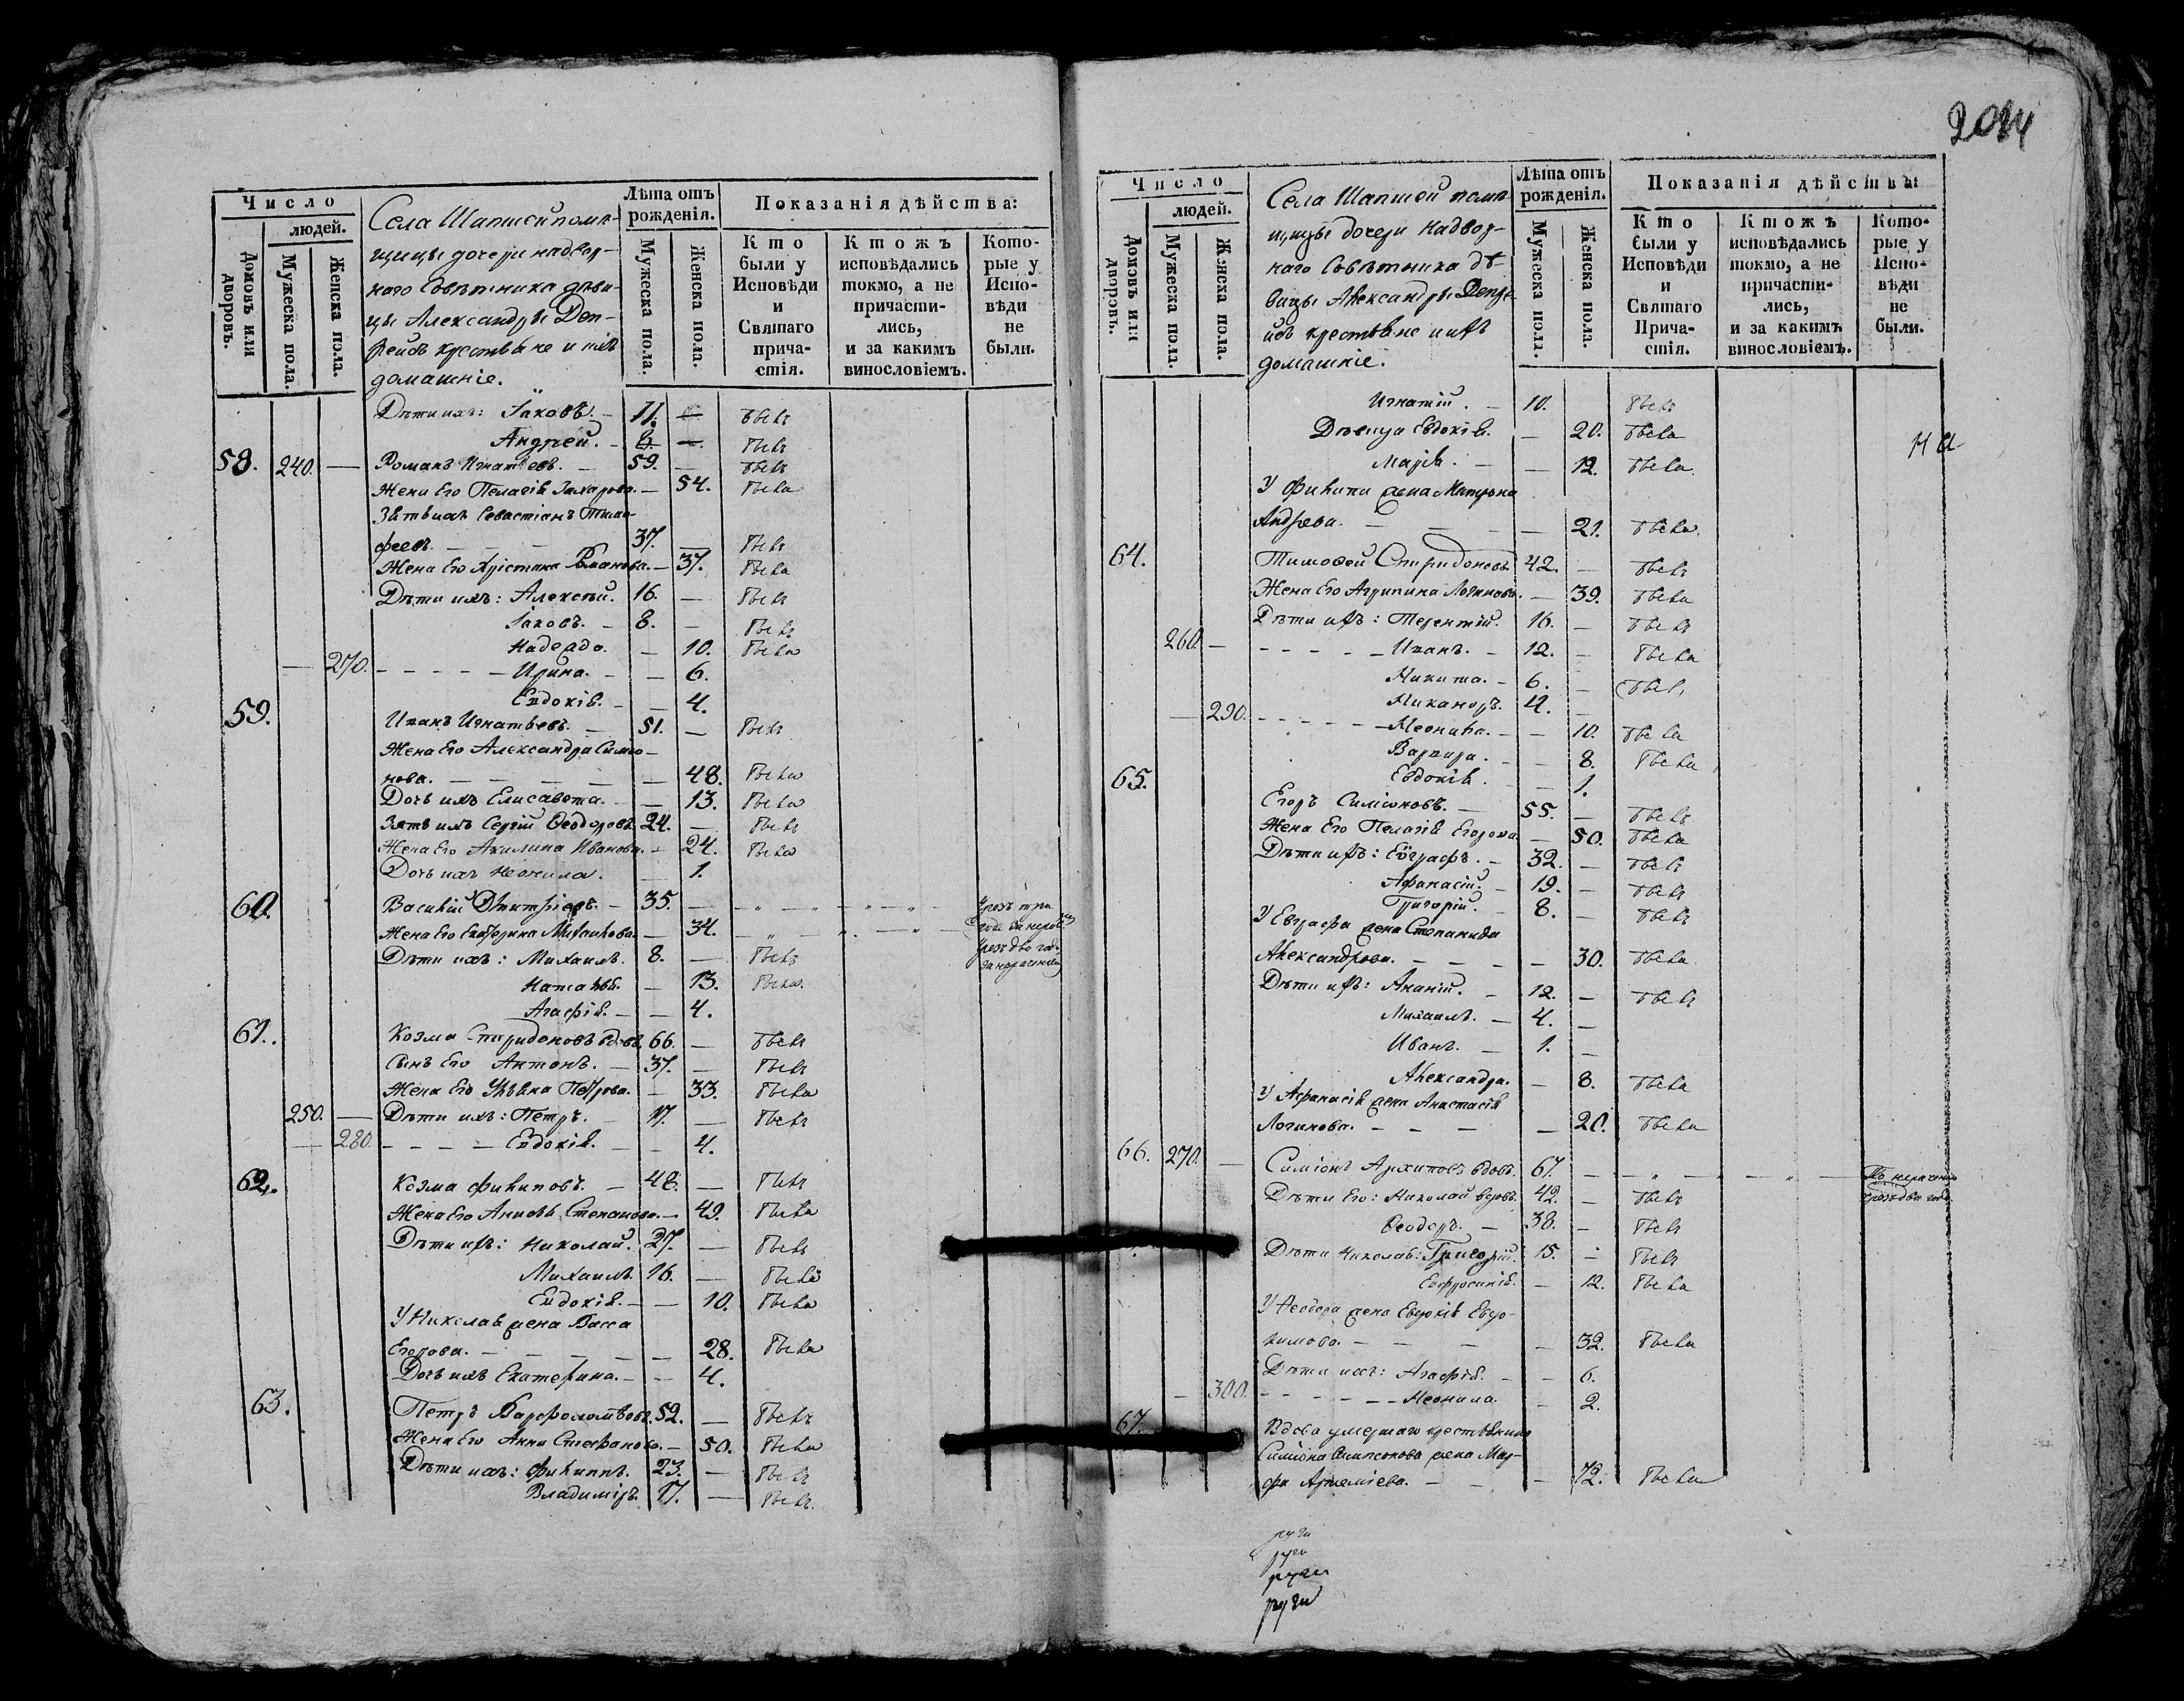 Число
людей.
Домовъ или дворовъ.
Мужеска пола.
Женска пола.
Села Шапшей помѣ-
щицы дочери надвор-
наго Совѣтника дѣви-
цы Александры Деп-
рейсъ крестьяне и ихъ
домашніе.
Лѣта отъ рожденія.
Мужеска пола.
Женска пола.
Показанія дѣйства:
Кто были у Исповѣди и Святаго причастія.
Ктожъ исповѣдались токмо, а не причастились, и за какимъ винословіемъ.
Которые у Исповѣди не были.
Дѣти ихъ: Іаковъ. – 11. – былъ
Андрей. – 6. – былъ
58. 240. — Романъ Игнатьевъ. – 59. – былъ
Жена Его Пелагія Захарова. – 54. была
Зять ихъ Севастіанъ Тимо-
феевъ. – – – 37. – былъ
Жена Его Христина Романова. – 37. была
Дѣти ихъ: Алексѣй. 16. – былъ
Іаковъ. – 8. – былъ
Надежда. – 10. была
— 270. – – – – Ирина. – – 6.
Евдокія. – – 4.
59. Иванъ Игнатьевъ. – 51. – былъ
Жена Его Александра Симео-
нова. – – – – – 48. была
Дочь ихъ Елисавета. – – 13. была
Зять ихъ Сергій Ѳеодоровъ 24. – былъ
Жена Его Акилина Иванова. – 24. была
Дочь ихъ Неонила. – 1.
60. Василій Дмитріевъ. – 35. – – „ – „ – „ – „ – чрезъ три
Жена Его Екатерина Михаилова. – 34. – „ – „ – „ – года за нерад.
чрезъ два года
за нераченіем
Дѣти ихъ: Михаилъ. 8. – былъ
Наталія. – 13. была.
Агафія. – – 4.
61. Козма Спиридоновъ вдовъ. 66. – былъ
Сынъ Его Антонъ. – 37. – былъ
Жена Его Ульяна Петрова. – 33. была
250. — Дѣти ихъ: Петръ. – 17. – былъ
— 280. – – – – Евдокія. – – 4.
62. Козма Филиповъ. – 48. – былъ
Жена Его Анисья Степанова. – 49. была
Дѣти ихъ: Николай. 27. – былъ
Михаилъ. 16. – былъ
Евдокія. – – 10. была
У Николая жена Васса
Егорова. – – – – – 28. была
Дочь ихъ Екатерина. – – 4.
63. Петръ Варфоломѣевъ. 52. – былъ
Жена Его Анна Стефанова. – 50. была
Дѣти ихъ: Филиппъ. 23. – былъ
Владиміръ. 17. – былъ.
Число
людей.
Домовъ или дворовъ.
Мужеска пола.
Женска пола.
Села Шапшей помѣ-
щицы дочери Надвор-
наго Совѣтника дѣ-
вицы Александры Депре-
йсъ крестьяне и ихъ
домашніе.
Лѣта отъ рожденія.
Мужеска пола.
Женска пола.
Показанія дѣйства:
Кто были у Исповѣди и Святаго Причастія.
Ктожъ исповѣдались токмо, а не причастились, и за какимъ винословіемъ.
Которые у Исповѣди не были.
Игнатій. – 10. былъ
Дѣвица Евдокія. – 20. была
Марія. – – 12. была.
У Филипа жена Матрона
Андрева. – – – – 21. была.
64. Тимоѳей Спиридоновъ 42. – былъ
Жена Его Агрипина Логинова. – 39. была
Дѣти ихъ: Терентій. 16. – былъ
260. – – – – – Иванъ. – 12. – была
Никита. – 6. – былъ
Никаноръ. 4. –
— 290. – – – – – Неонила. – – 10. была
Варвара. – – 8. была
Евдокія. – – 1.
65. Егоръ Симіоновъ. – 55. – былъ
Жена Его Пелагія Егорова. – 50. была
Дѣти ихъ: Евграфъ. – 32. – былъ
Афанасій. – 19. – былъ
Григорій. – 8. – былъ
У Евграфа жена Степанида
Александрова. – – – – 30. была
Дѣти ихъ: Ананій. – 12. – былъ
Михаилъ. – 4. –
Иванъ. – 1. –
Александра. – 8. была
У Афанасія жена Анастасія
Логинова. – – – – 20. была
66. 270. — Симіонъ Архиповъ вдовъ. 67. – – „ – „ – „ – нераченіемъ
чрезъ два года
Дѣти Его: Николай вдовъ. 42. – былъ
Ѳеодоръ. – 38. – былъ
Дѣти Николая: Григорій. 15. – былъ
Евфросинія. – 12. была
У Ѳеодора жена Евдокія Евдо-
кимова. – – – – 32. была
Дѣти ихъ: Агафія. – – 6.
— 300. – – – – – Неонила. – 2.
67. Вдова умершаго крестьянина
Симіона Самсонова жена Мар-
фа Артемьева. – – – 72. была
руги
руги
руги
руги